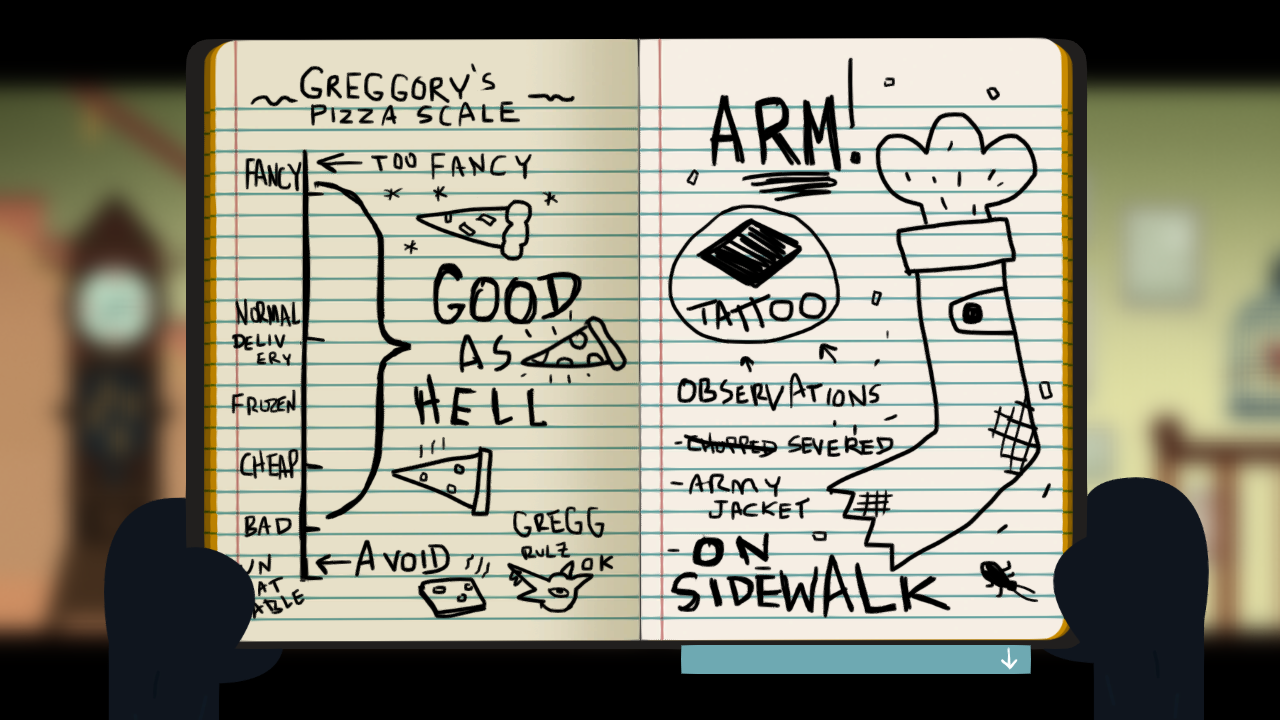 GREGGORY'S
PIZZA SCALE
FANCY
← TOO FANCY
GOOD
NORMAL
DELIV
ERY
AS
FROZEN
HELL
CHEAP
BAD
GREGG
RULZ
OK
UN
← AVOID
AT
ABLE
ARM!
TATTOO
OBSERVATIONS
- CHOPPED SEVERED
- ARMY
JACKET
- ON
SIDEWALK